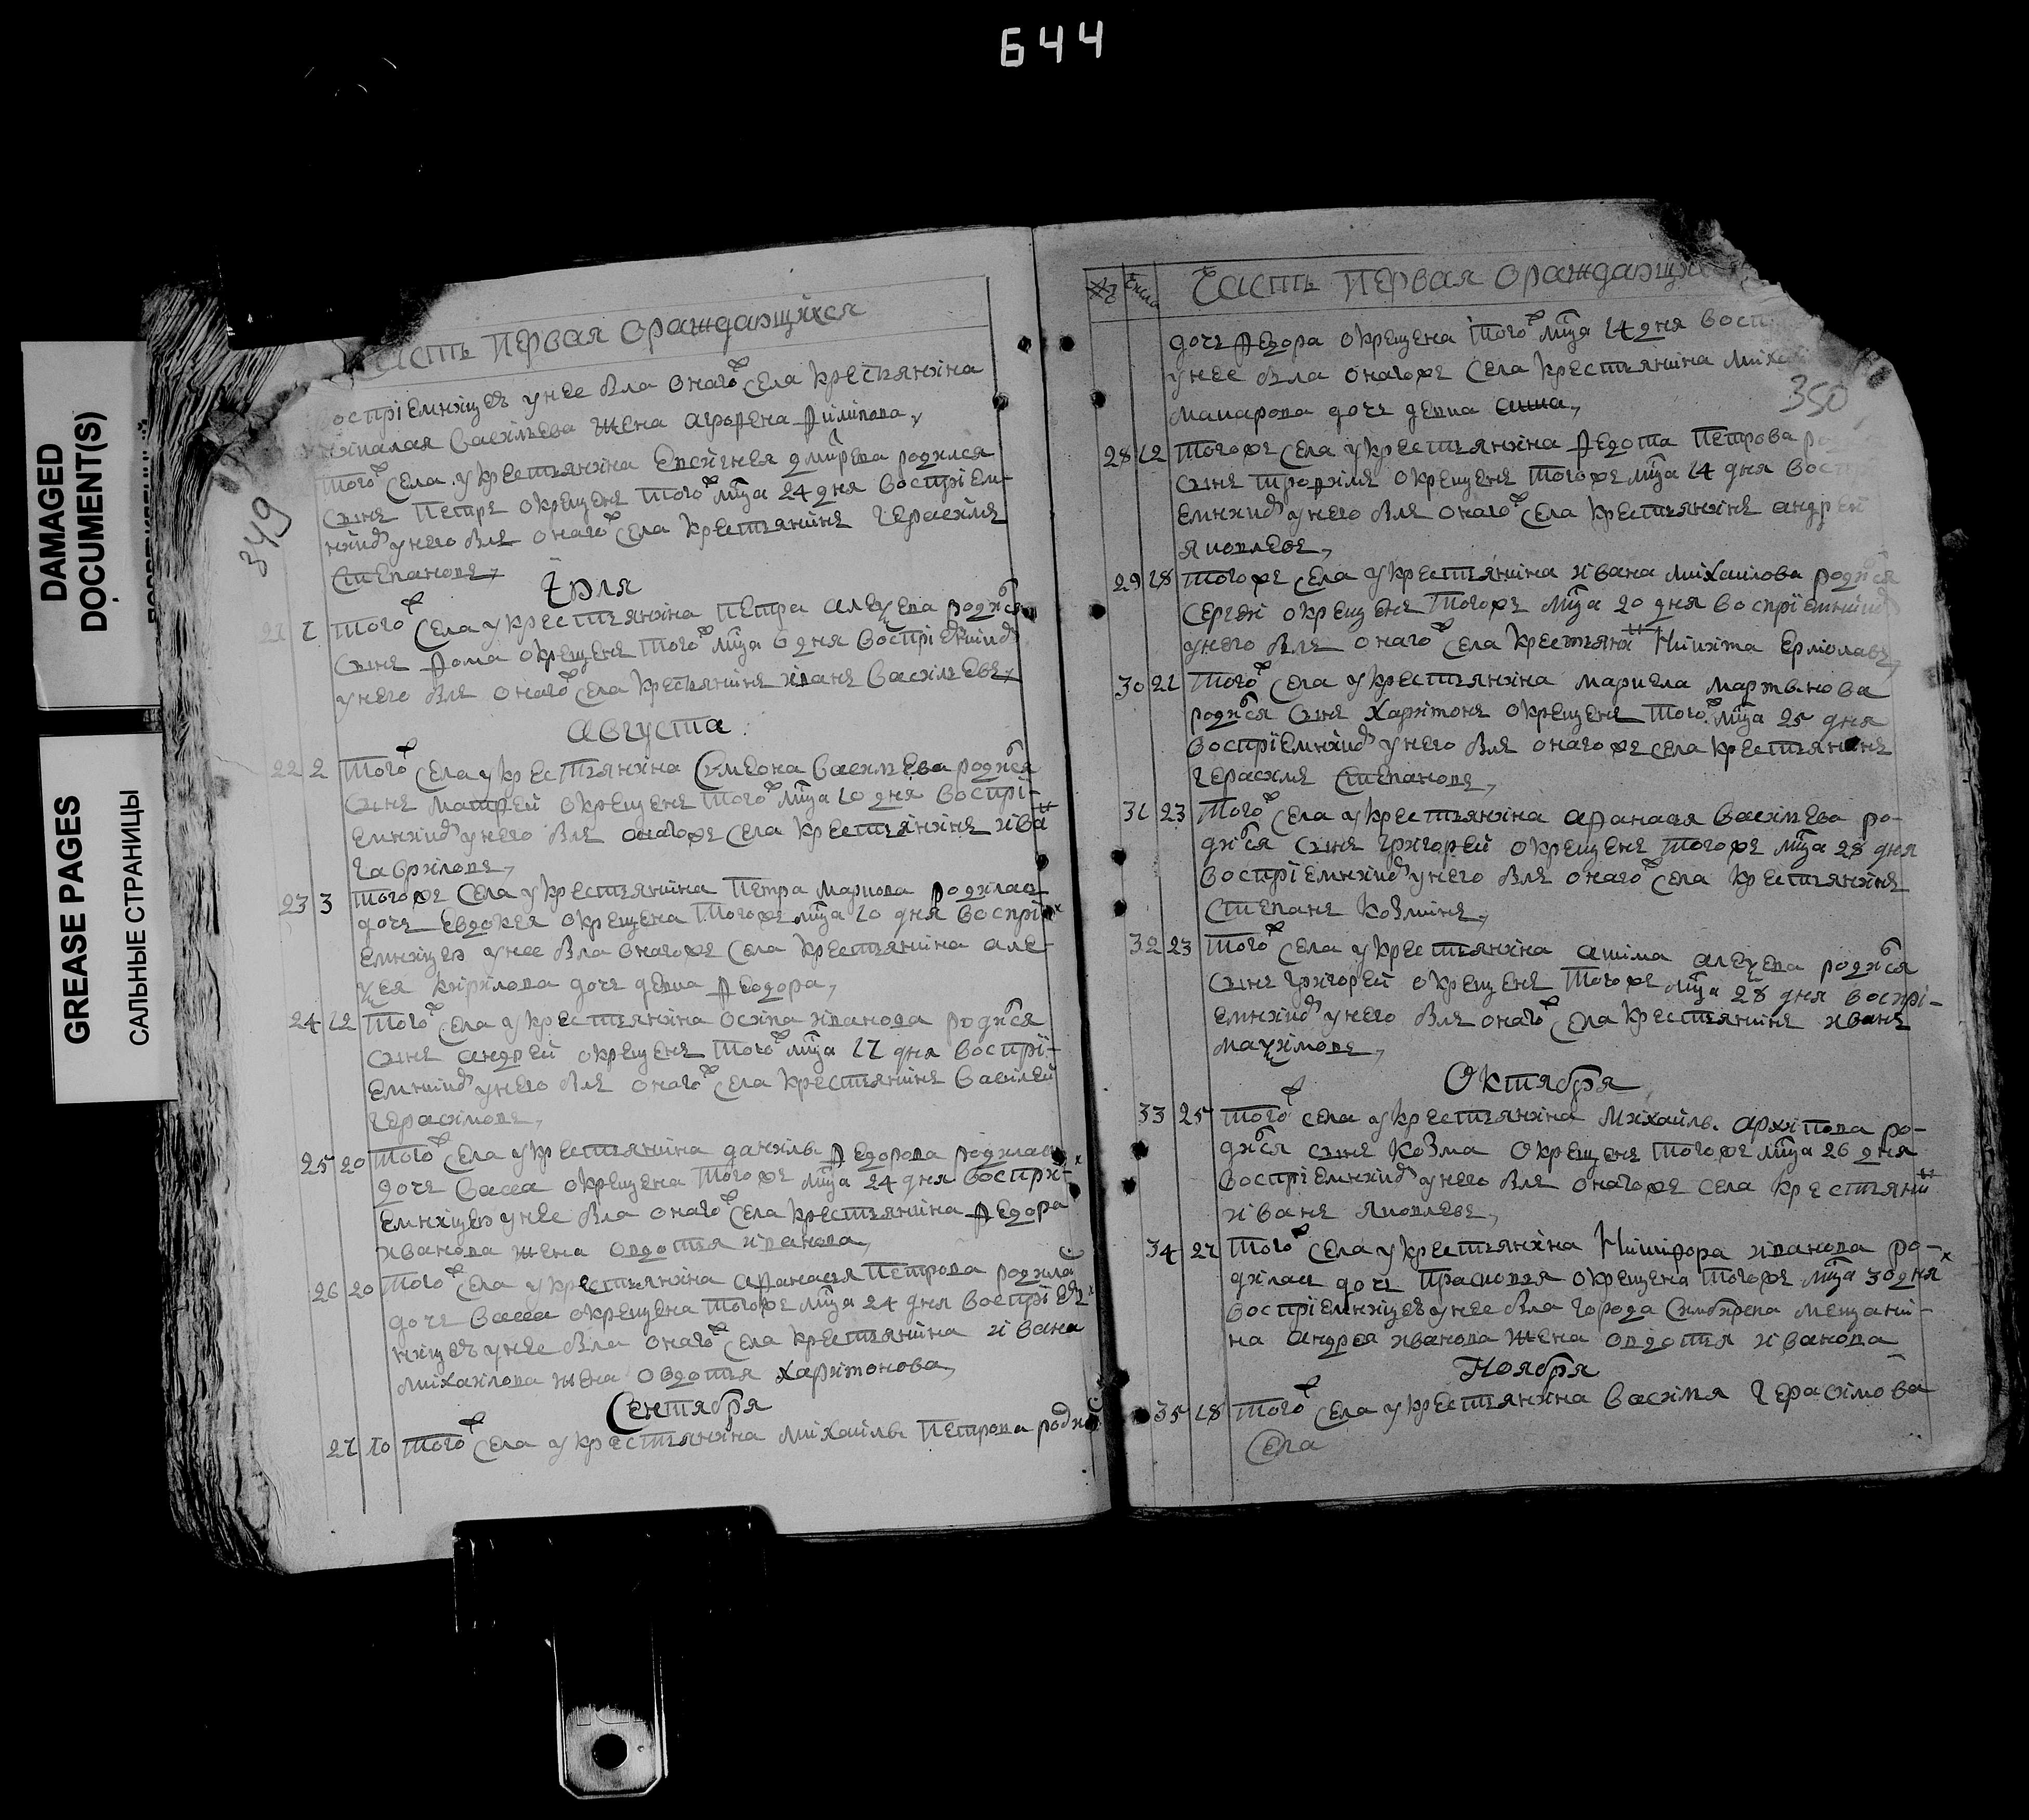 644
DAMAGED
DOCUMENT(S)
GREASE PAGES
САЛЬНЫЕ СТРАНИЦЫ
349
асть первая ораждающихся
оспріемницеѣ унее была онагож села крестьянина
василъева жена агрофена филипова,
тогож села укрестьянина дмиріева родился
сынъ петръ окрещенъ тогож мца 24 дня воспріем-
никомъ унего былъ онагож села крестьянинъ герасимъ
степановъ,
Іюля
21 1 тогож села укрестьянина петра алеѯева родился
сынъ фома окрещенъ тогож мца 6 дня воспріемникомъ
унего былъ онагож села крестьянинъ иванъ василъевъ,
августа
22 2 тогож села укрестьянина Сумеона василъева родился
сынъ матфей окрещенъ тогож мца 10 дня воспрі-
емникомъ унего былъ онагоже села крестьянинъ иванъ
гавриловъ,
23 3 тогоже села укрестьянина петра маркова родилась
дочь евдокея окрещена тогоже мца 10 дня воспрі-
емницею унее была онагоже села крестьянина але-
ѯея кирилова дочь девка феодора,
24 12 тогож села укрестьянина осипа иванова родился
сынъ андрей окрещенъ тогож мца 17 дня воспрі-
емникомъ унего былъ онагож села крестьянинъ василей
герасимовъ,
25 20 тогож села укрестьянина данилы федорова родилась
дочь васса окрещена тогоже мца 24 дня воспри-
емницею унее была онагож села крестьянина федора
иванова жена овдотья иванова,
26 20 тогож села укрестьянина афанасья петрова родилас
дочь васса окрещена тогоже мца 24 дня воспріем
ницеѣ унее была онагож села крестьянина ивана
михаилова жена овдотья харитонова,
Сентября
27 10 тогож села укрестьянина михаилы петрова родилас
№ Число Часть первая ораждающи
350
дочь федора окрещена тогож мца 14 дня восп
унее была онагоже села крестьянина михаи
макарова дочь девка анна,
28 12 тогоже села укрестьянина федота петрова ро
сынъ трофимъ окрещенъ тогоже мца 14 дня воспрі
емникомъ унего былъ онагож села крестьянинъ андрей
яковлевъ,
29 18 тогоже села укрестьянина ивана михаилова родился
сергей окрещенъ тогоже мца 20 дня воспріемникомъ
унего былъ онагож села крестьянинъ никита ермолаевъ,
30 21 тогож села укрестьянина маркела мартынова
родился сынъ харитонъ окрещенъ тогож мца 25 дня
воспріемникомъ унего былъ онагоже села крестьянинъ
герасимъ степановъ,
31 23 тогож села укрестьянина афанасья василъева ро-
дился сынъ григорей окрещенъ тогоже мца 28 дня
воспріемникомъ унего былъ онагож села крестьянинъ
степанъ козминъ,
32 23 тогож села укрестьянина акима алеѯева родился
сынъ григорей окрещенъ тогоже мца 28 дня воспрі-
емникомъ унего былъ онагож села крестьянинъ иванъ
маѯимовъ,
Октября
33 25 тогож села укрестьянина михаилы архипова ро-
дился сынъ козма окрещенъ тогоже мца 26 дня
воспріемникомъ унего былъ онагоже села крестьянинъ
иванъ яковлевъ,
34 27 тогож села укрестьянина никифора иванова ро-
дилась дочь прасковья окрещена тогоже мца 30 дня
воспріемницеѣ унее была города симбирска мещани-
на андрея иванова жена овдотья иванова
Ноября
35 18 тогож села укрестьянина василья герасимова